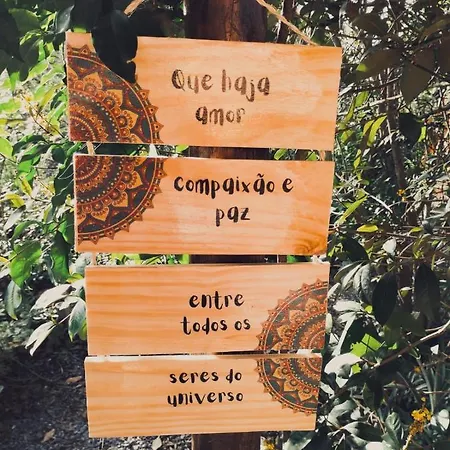 Que haja
amor
compaixão e
paz
entre
todos os
seres do
universo